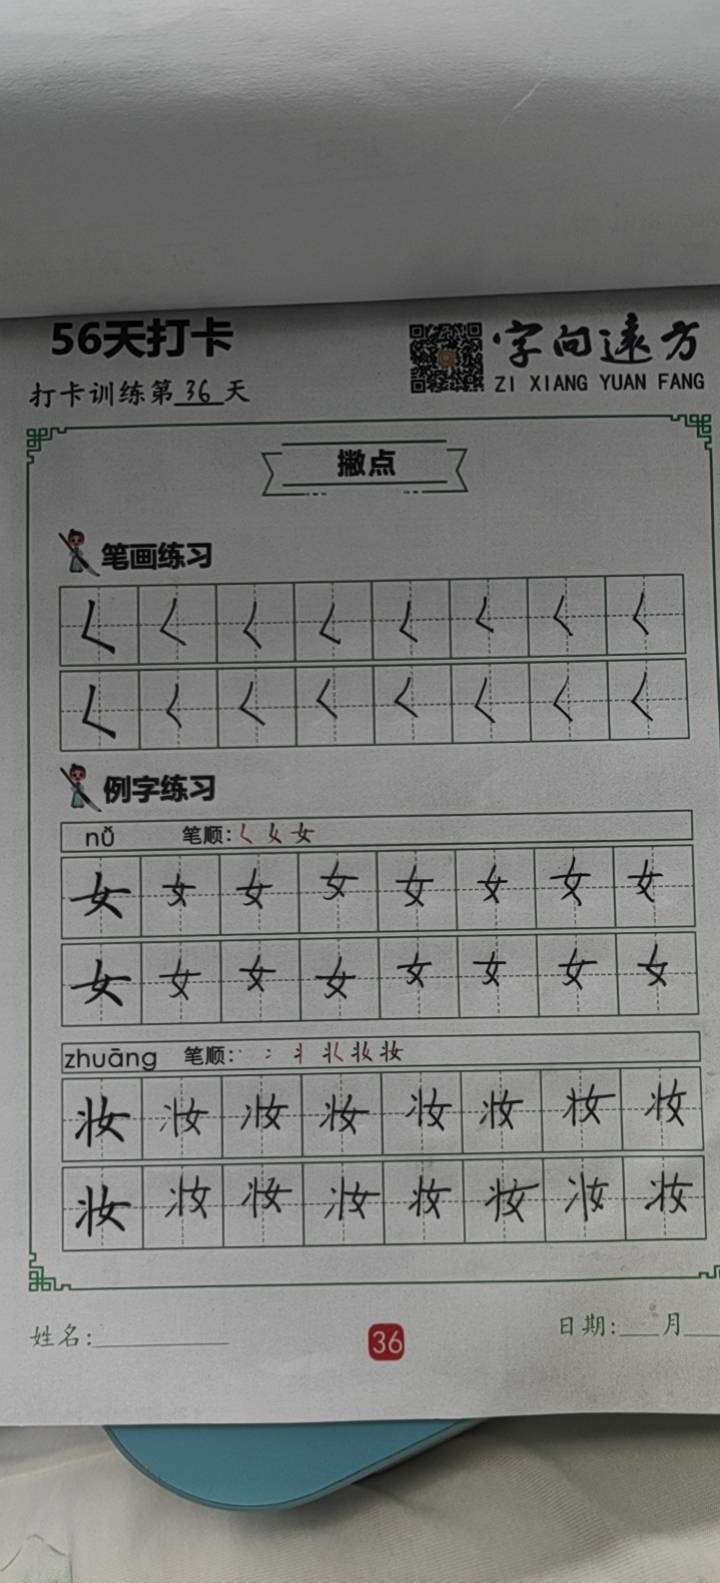 56天打卡
字向远方
ZI XIANG YUAN FANG
打卡训练第36天
撇点
笔画练习
𡿨 𡿨 𡿨 𡿨 𡿨 𡿨 𡿨 𡿨
𡿨 𡿨 𡿨 𡿨 𡿨 𡿨 𡿨 𡿨
例字练习
nǚ 笔顺: 𡿨 女 女
女 女 女 女 女 女 女 女
女 女 女 女 女 女 女 女
zhuāng 笔顺: 丶 冫 丬 妆 妆
妆 妆 妆 妆 妆 妆 妆 妆
妆 妆 妆 妆 妆 妆 妆 妆
姓名:
36
日期: 月